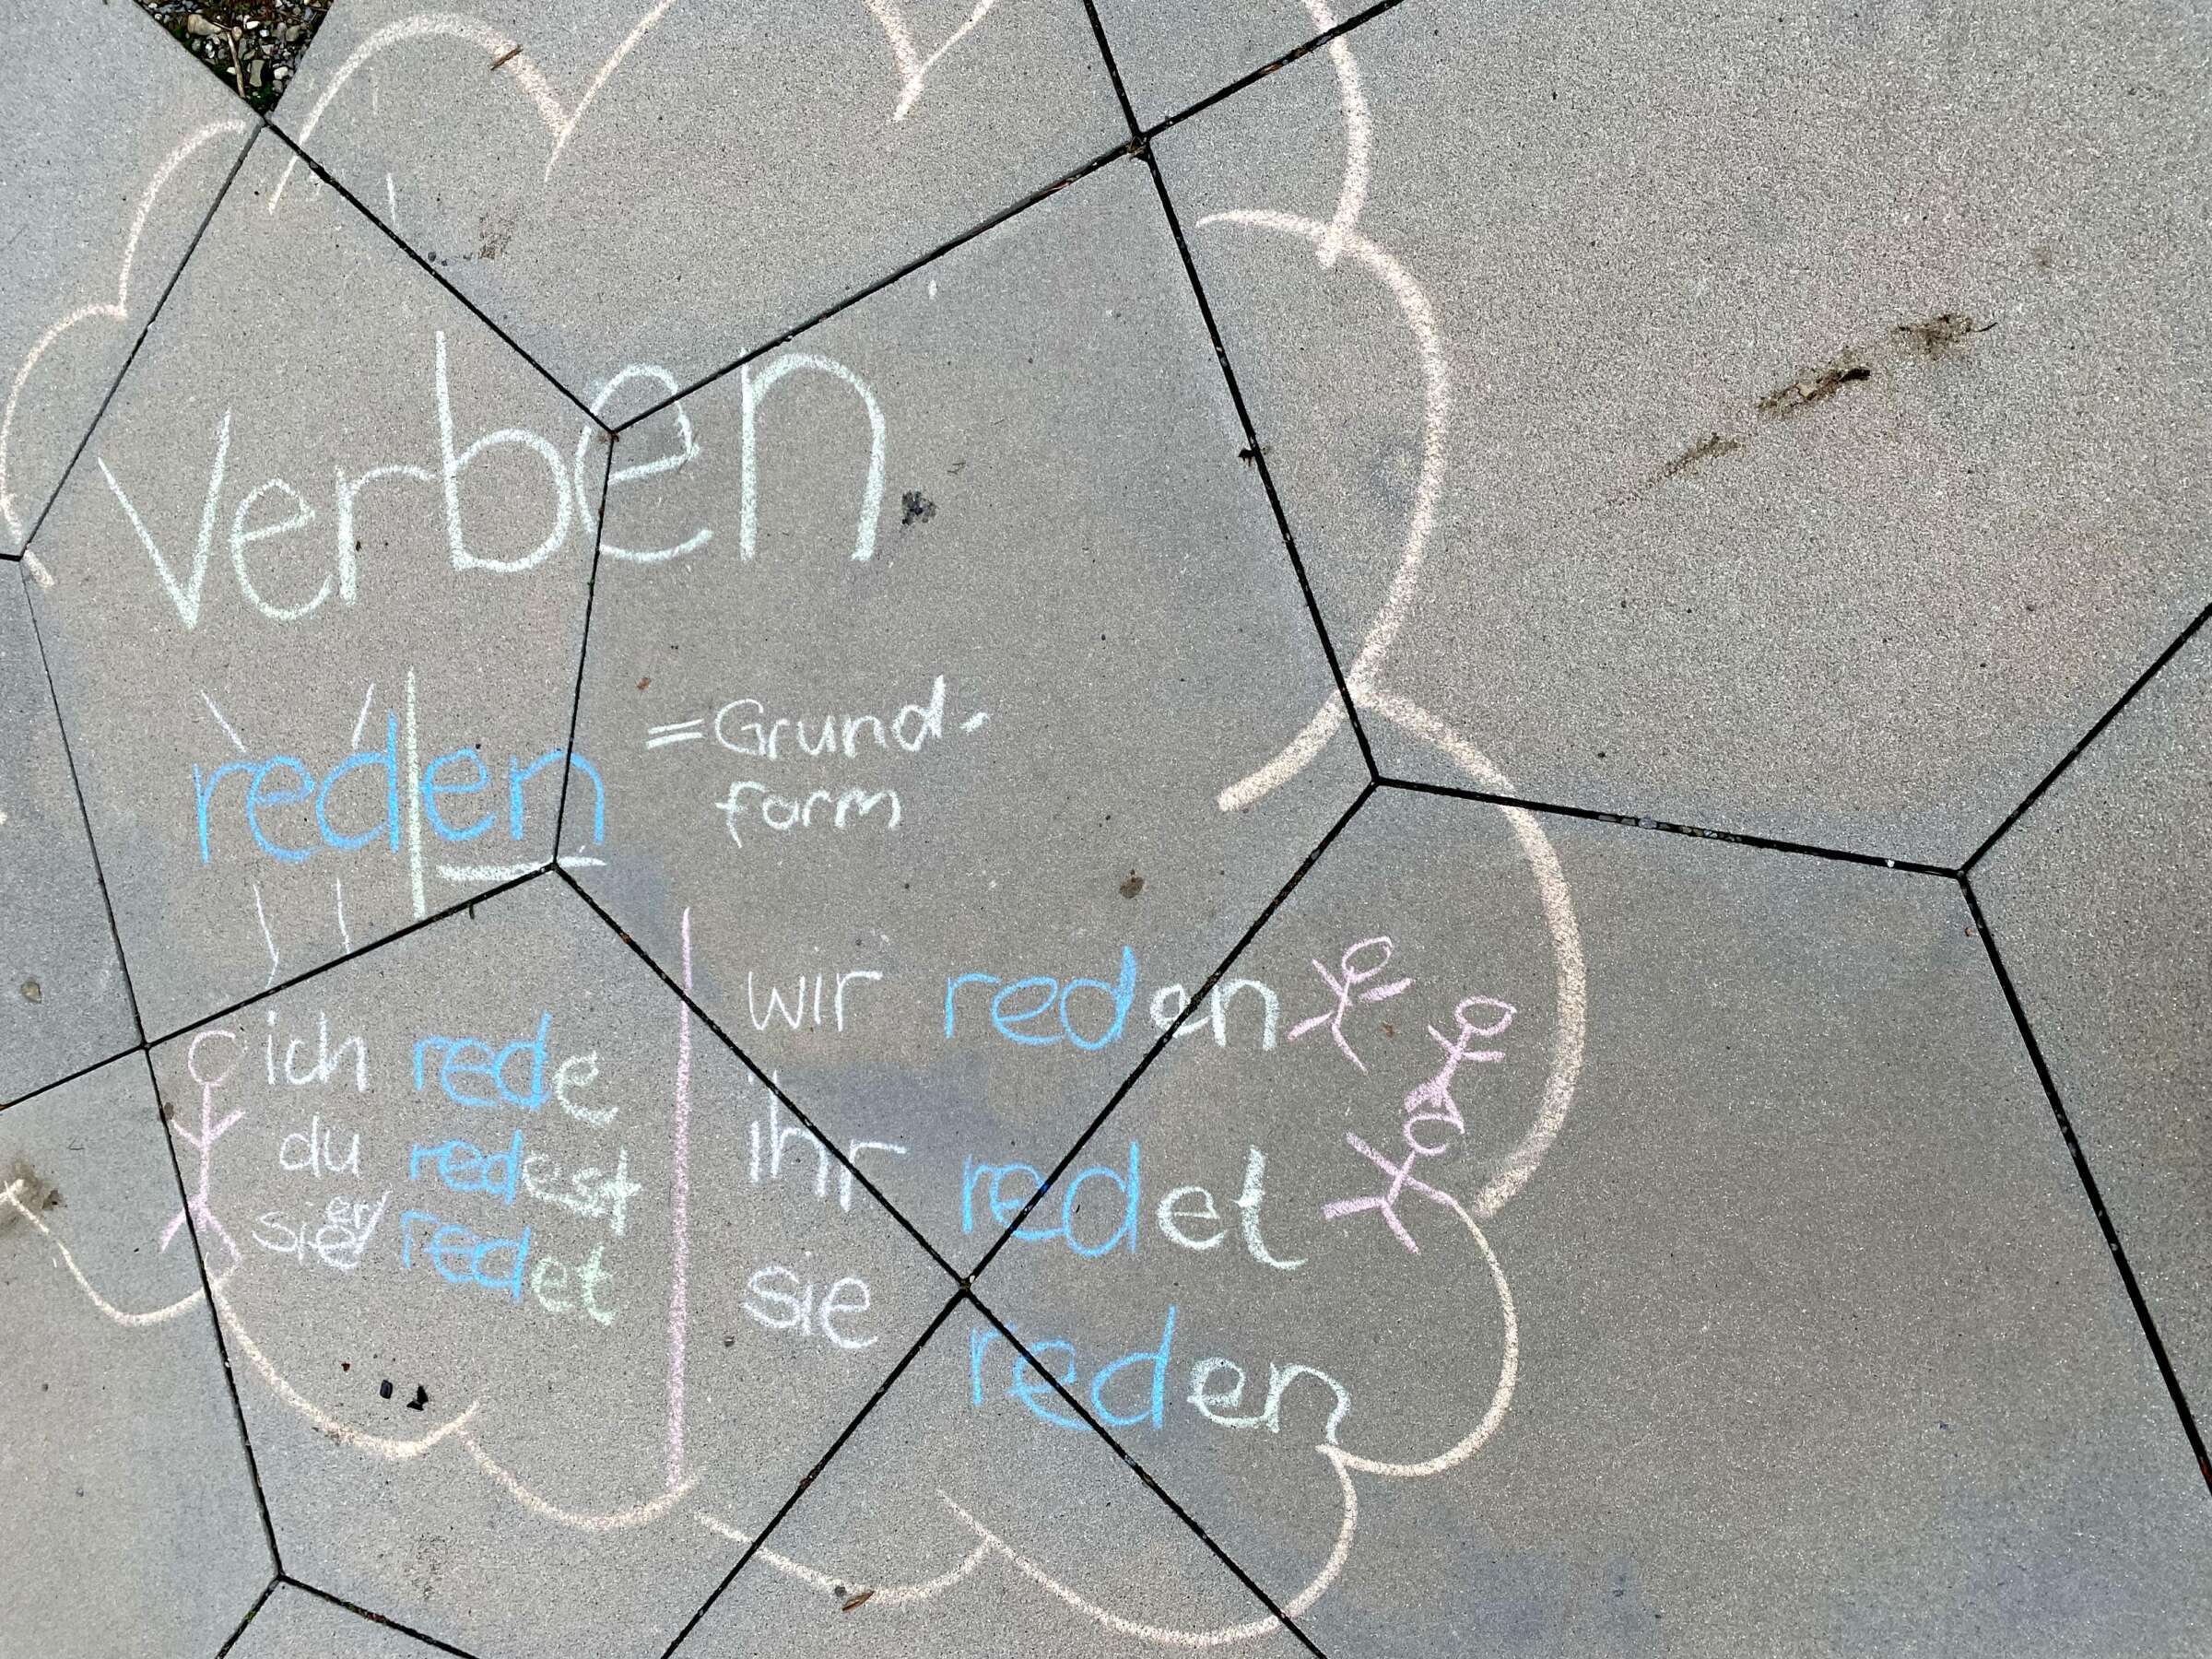 Verben
red|en
= Grund-
form
ich rede
du redest
sie er/ redet
wir reden
ihr redet
sie reden